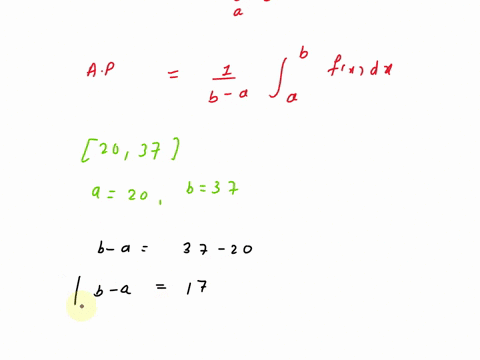 a
A.P = 1/(b-a) ∫_a^b f(x) dx
[20, 37]
a = 20, b = 37
b-a = 37-20
b-a = 17